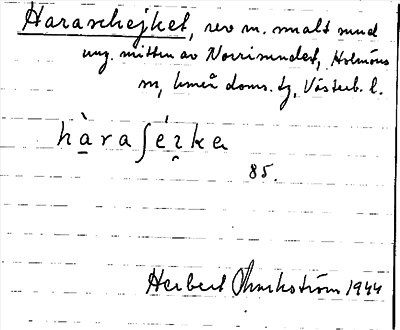 Haraschejket, rev m. smalt sund
ung. mitten av Norrisundet, Holmöns
sn, Umeå doms. tg, Västerb. l.
hàraʃéɪke
85.
Herbert Ohrnström 1944